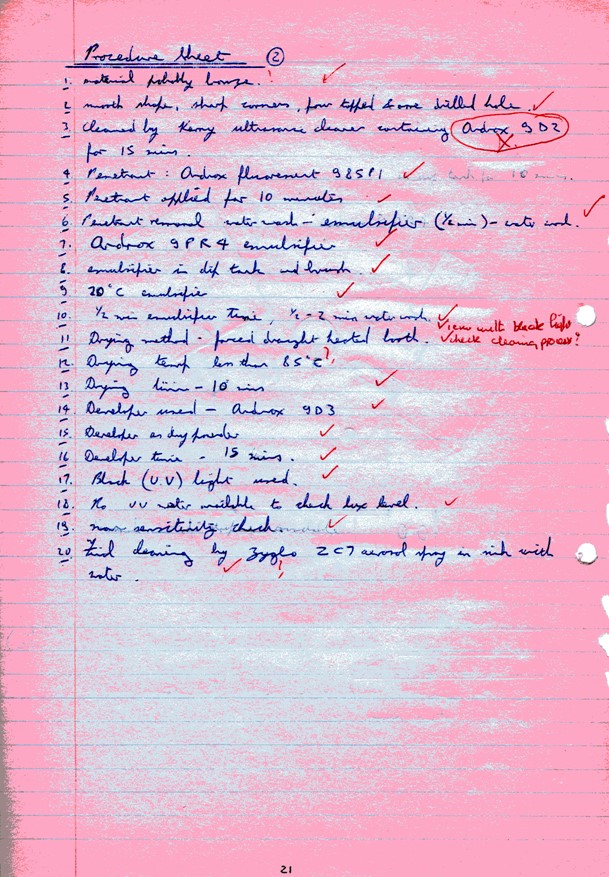 Procedure Sheet (2)
1. material probably bronze. ! ✓
2 month shape, sharp corners, four tapped & one drilled hole. ✓
3 cleaned by Kerry ultrasonic cleaner containing Ardrox 9D2 X
for 15 mins.
4 Penetrant : Ardrox fluorescent 985P1 ✓ 10 mins.
5. Penetrant applied for 10 minutes ✓
6 Penetrant removal water wash - emulsifier (½ min) - water wash. ✓
7. Ardrox 9PR4 emulsifier ✓
8. emulsifier in dip tank and brush. ✓
9 20°C emulsifier ✓
10. ½ min emulsifier time, ½ - 2 min water wash. ✓
✓ view with black light
11 Drying method - forced draught heated booth. ✓ check cleaning process?
12. Drying temp less than 85°C ?
13 Drying time - 10 mins ✓
14 Developer used - Ardrox 9D3 ✓
15. Developer as dry powder ✓
16 Developer time - 15 mins. ✓
17. Black (U.V) light used. ✓
18. No UV meter available to check lux level. ✓
19. sensitivity check. ✓
20. Final cleaning by Zyglo ZC7 aerosol spray in sink with
water. ✓ !
21